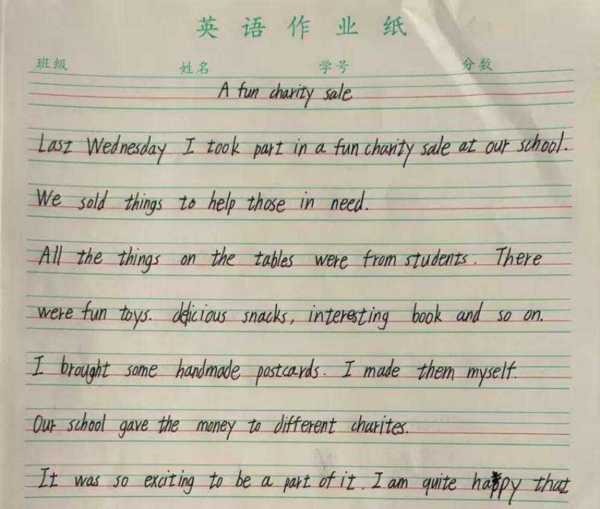 英语作业纸
班级 姓名 学号 分数
A fun charity sale
Last Wednesday I took part in a fun charity sale at our school.
We sold things to help those in need.
All the things on the tables were from students. There
were fun toys. delicious snacks, interesting book and so on.
I brought some handmade postcards. I made them myself.
Our school gave the money to different charites.
It was so exciting to be a part of it. I am quite happy that